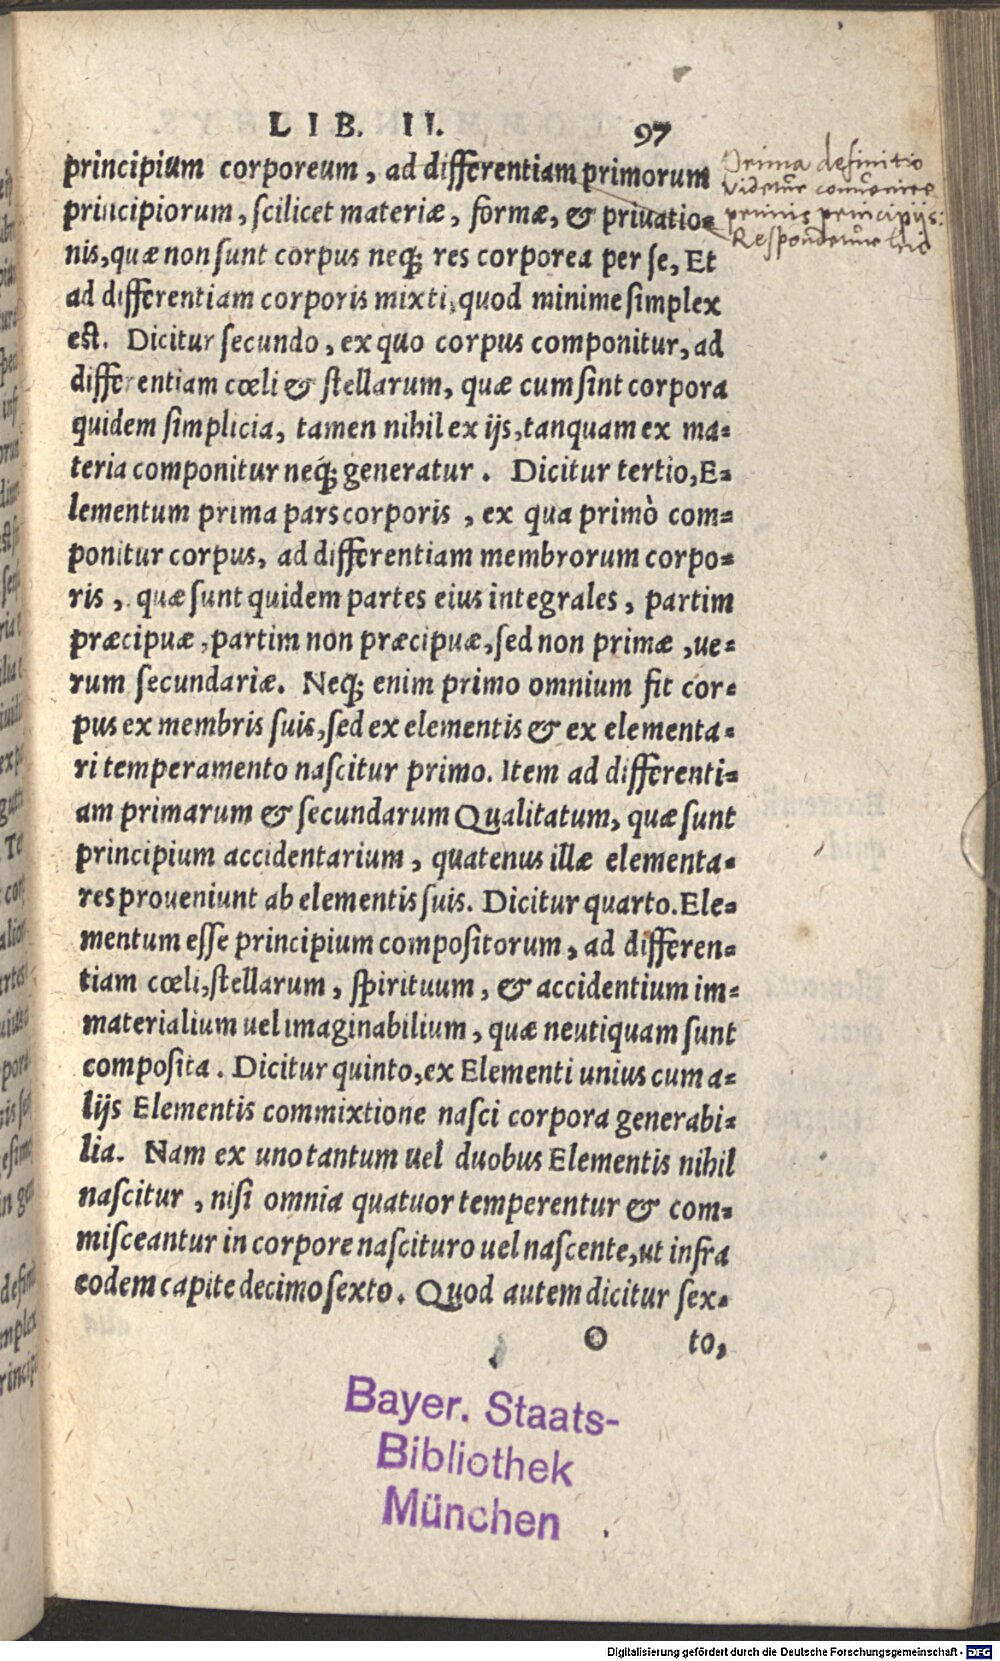 LIB. II. 97
principium corporeum, ad differentiam primorum
principiorum, scilicet materiæ, formæ, & priuatio=
nis, quæ non sunt corpus neq; res corporea per se, Et
ad differentiam corporis mixti, quod minime simplex
est. Dicitur secundo, ex quo corpus componitur, ad
differentiam cœli & stellarum, quæ cum sint corpora
quidem simplicia, tamen nihil ex ijs, tanquam ex ma=
teria componitur neq; generatur. Dicitur tertio, E=
lementum prima pars corporis, ex qua primò com=
ponitur corpus, ad differentiam membrorum corpo=
ris, quæ sunt quidem partes eius integrales, partim
præcipuæ, partim non præcipuæ, sed non primæ, ue=
rum secundariæ. Neq; enim primo omnium fit cor=
pus ex membris suis, sed ex elementis & ex elementa=
ri temperamento nascitur primo. Item ad differenti=
am primarum & secundarum Qualitatum, quæ sunt
principium accidentarium, quatenus illæ elementa=
res proueniunt ab elementis suis. Dicitur quarto. Ele=
mentum esse principium compositorum, ad differen=
tiam cœli, stellarum, spirituum, & accidentium im=
materialium uel imaginabilium, quæ neutiquam sunt
composita. Dicitur quinto, ex Elementi unius cum a=
lijs Elementis commixtione nasci corpora generabi=
lia. Nam ex uno tantum uel duobus Elementis nihil
nascitur, nisi omnia quatuor temperentur & com=
misceantur in corpore nascituro uel nascente, ut infra
eodem capite decimo sexto. Quod autem dicitur sex=
O to,
Prima definitio
videtur conuenire
primis principijs:
Respondetur hic
Bayer. Staats-
Bibliothek
München
Digitalisierung gefördert durch die Deutsche Forschungsgemeinschaft - DFG